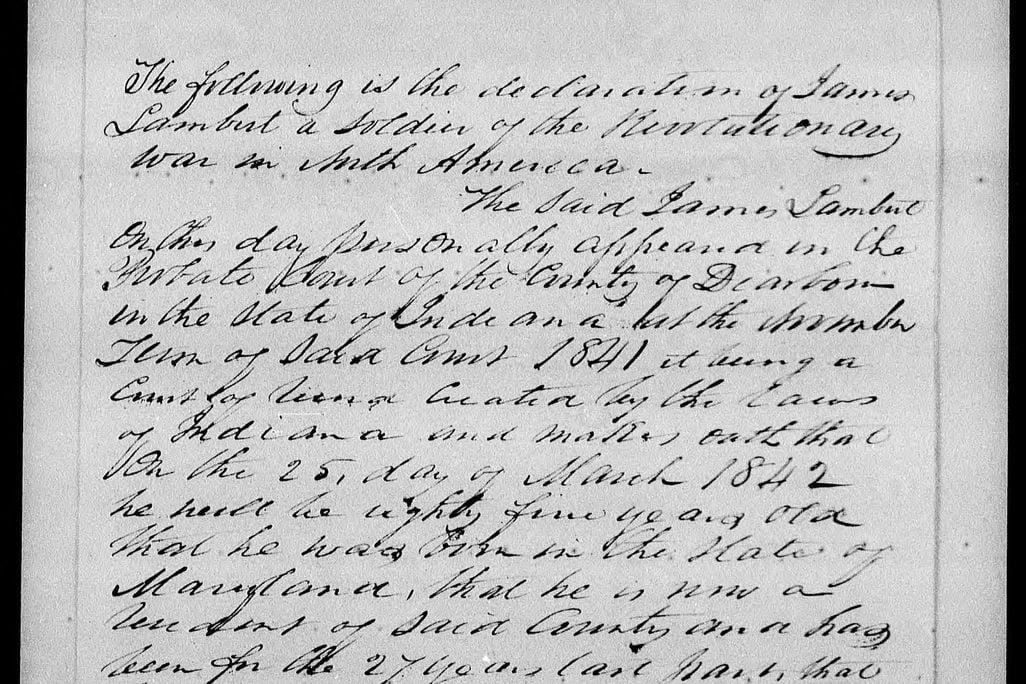 The following is the declaration of James
Lambert a soldier of the Revolutionary
war in North America.
The Said James Lambert
On this day personally appeared in the
Probate Court of the County of Dearborn
in the State of Indiana at the November
Term of Said Court 1841 it being a
Court of Record created by the laws
of Indiana and makes oath that
On the 25, day of March 1842
he will be eighty five years old
that he was born in the State of
Maryland, that he is now a
resident of said County and has
been for the 27 years last past, that